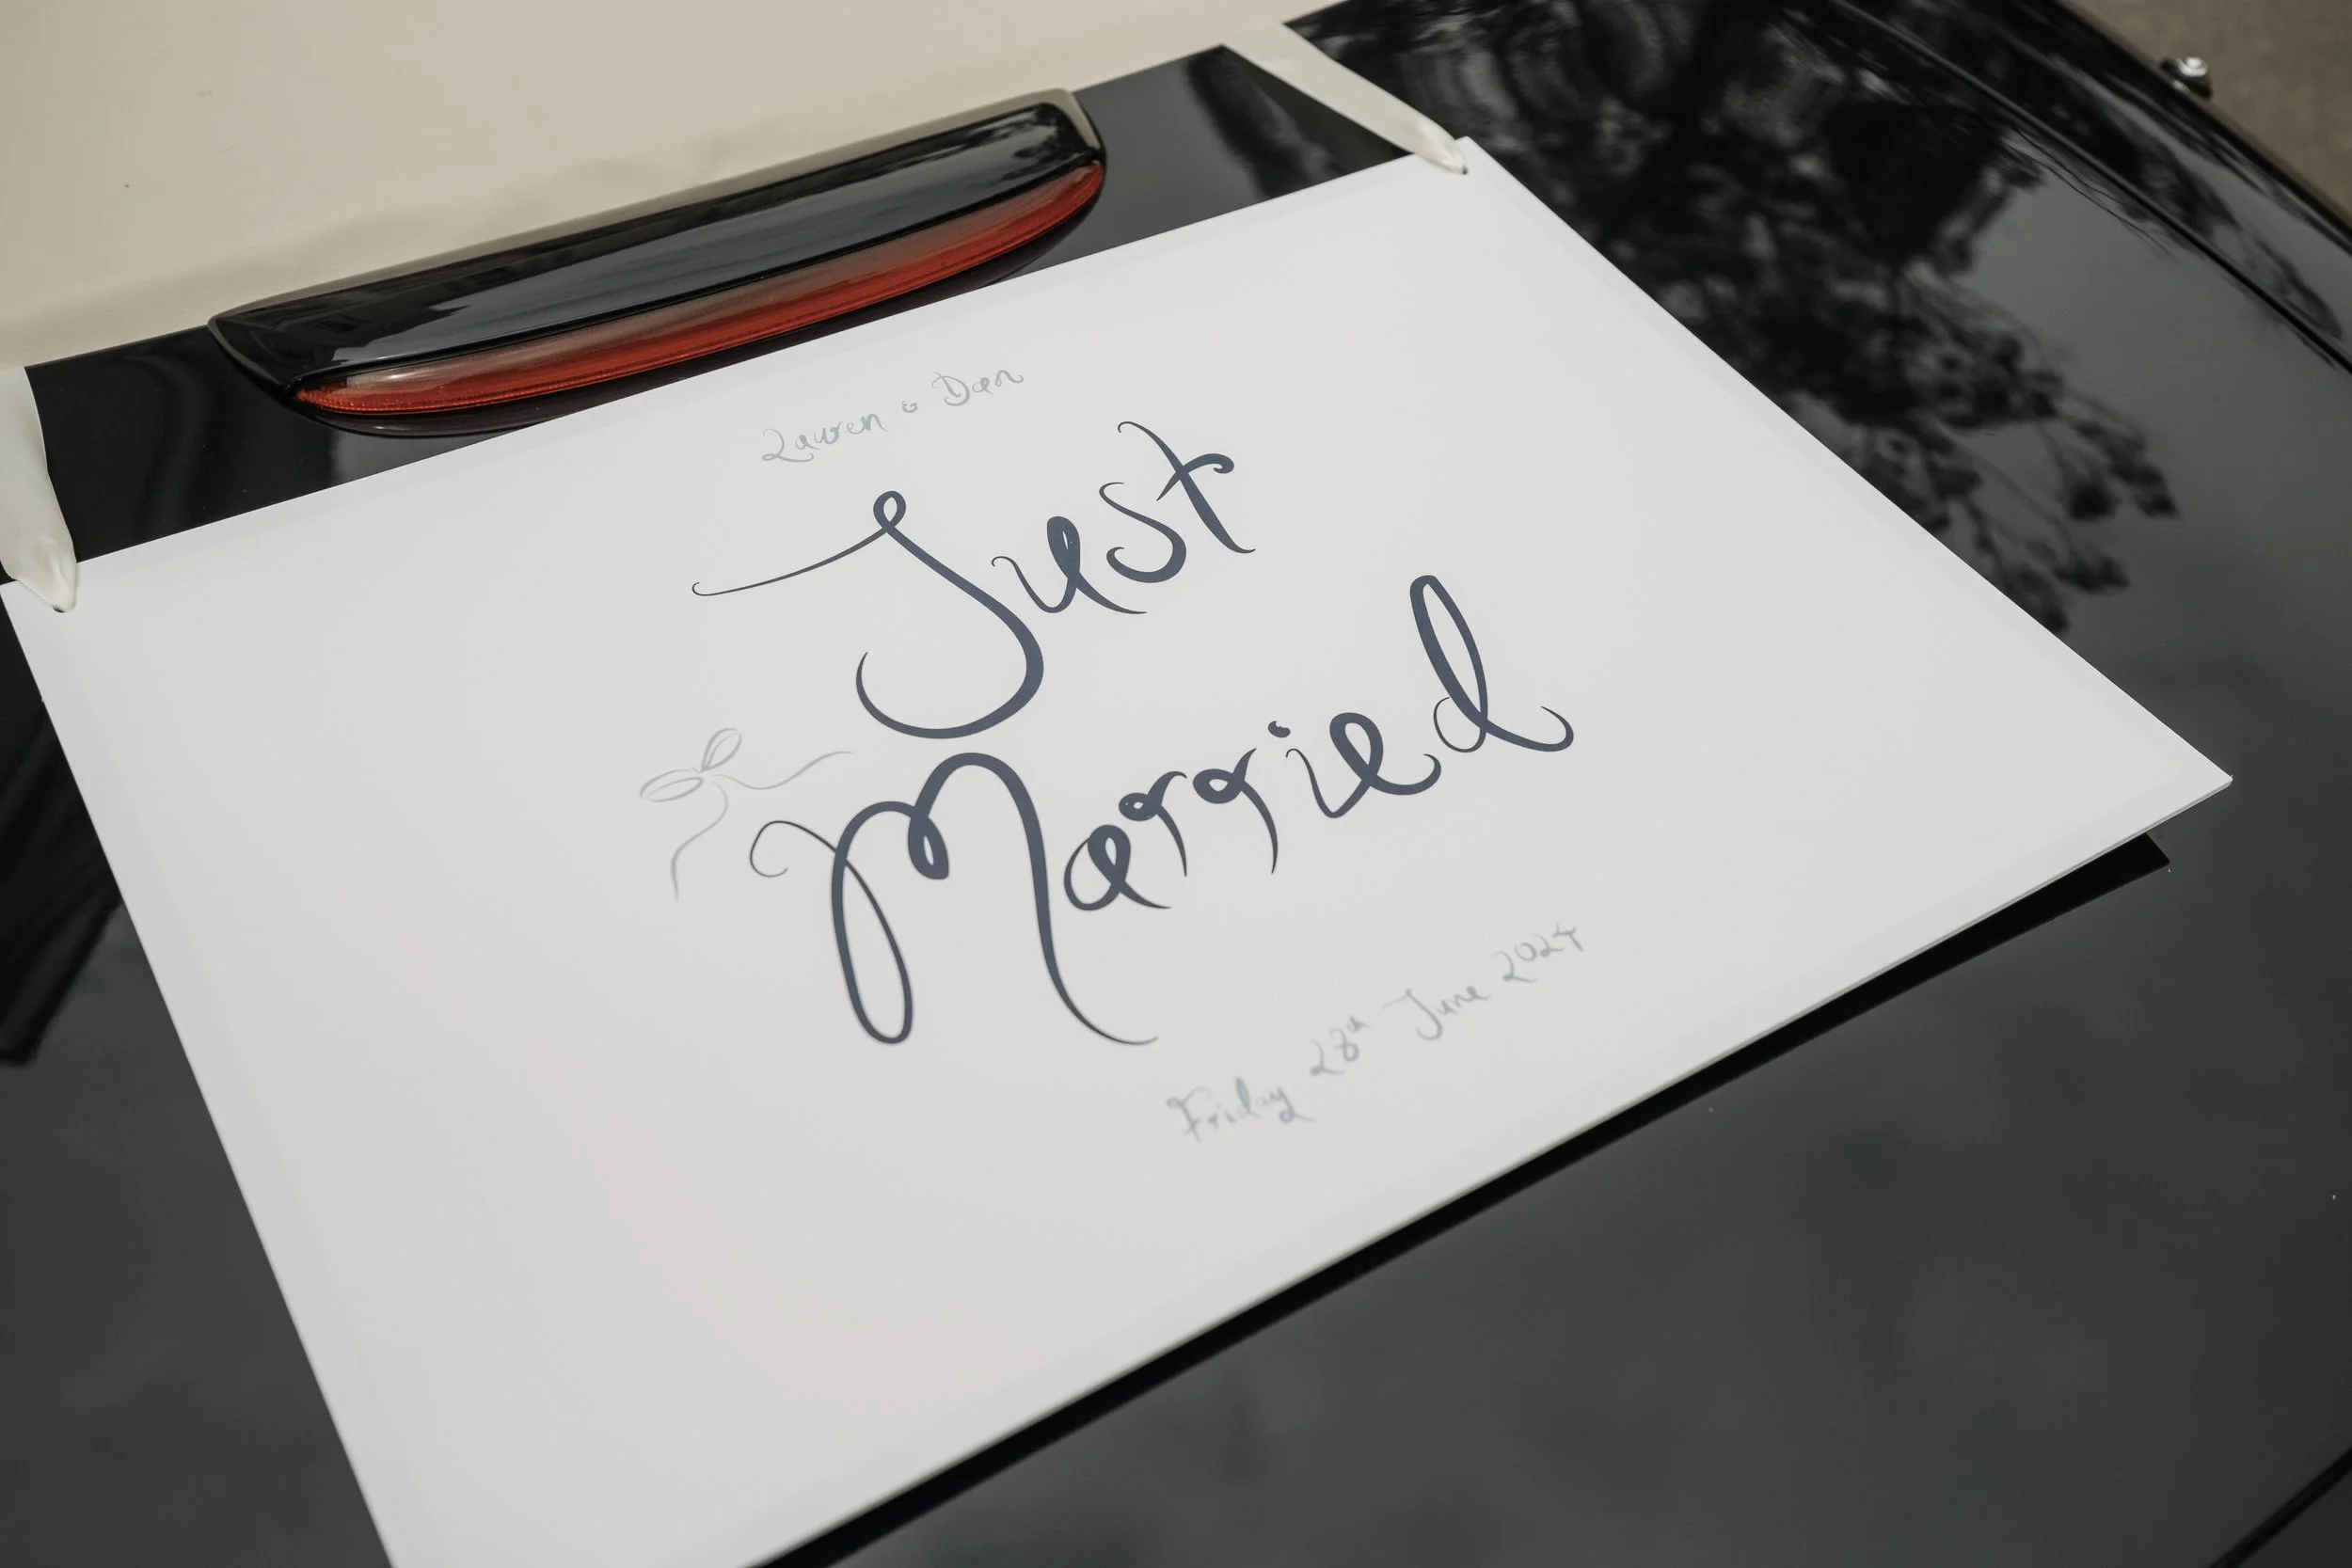 Lauren & Dan
Just
Married
Friday 28th June 2024